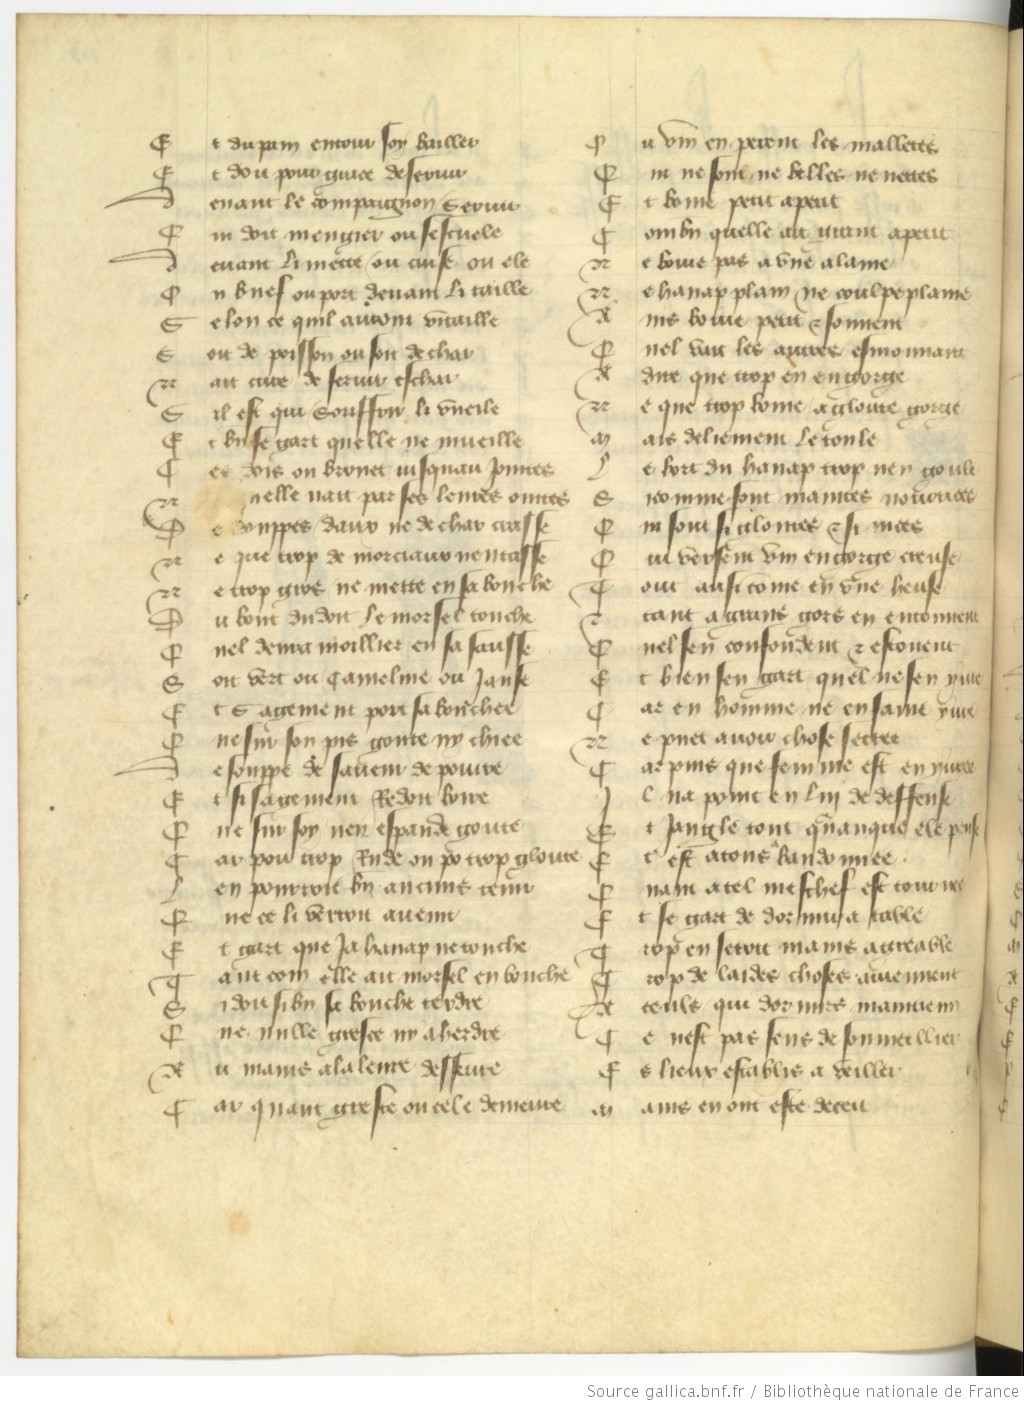 Et du pain entour soy baillier
Et doit pour grace deservir
Devant le compaignon servir
Qui doit mengier ou sescuele
Devant li mette ou cuise ou ele
Ou buef ou porc devant li taille
Selon ce quil auront vitaille
Soit de poisson ou soit de char
Nait cure de servir eschar
Sil est qui souffrir li vueille
Et bn se gart quelle ne mueille
Ces dois ou brouet jusquau jointes
Nelle nait par ses levres ointes
De souppes daux ne de char crasse
Ne que trop de morciaux nentasse
Ne trop gros ne mette en sa bouche
Du bout du doit le morsel touche
Quel devra moillier en sa sausse
Soit vert ou cameline ou jausse
Et sagement port sa bouchee
Que sur son pis goute ny chiee
De souppe de saveur de poivre
Et si sagement redoit boire
Que sur soy nen espande goute
Car pour trop rude ou po trop gloute
Len pourroit bn aucuns tenir
Que ce li verroit avenir
Et gart que ja hanap ne touche
Tant com elle ait morsel en bouche
Si doit si bn sa bouche terdre
Que nulle gresce ny aherdre
Au mains a la levre desseure
Car quant gresse ou cele demeure
Ou vin en perent les mailletes
Qui ne sont ne belles ne nettes
Et boive petit a petit
Combn quelle ait grant apetit
Ne boive pas a une alaine
Ne hanap plain ne coulpe plaine
Ains boive petit & souvent
Quel naut les autres esmouvant
A dire que trop en engorge
Ne que trop boive a gloute gorge
Mais deliement le coule
Le bort du hanap trop nen goule
Si comme font maintes nourrices
Qui sont si gloutes & si nices
Quil versent vin en gorge creuse
Tout ausi come en une heuse
Et tant a grans gors en entonnent
Quel sen confondent & estonent
Et bien sen gart quel ne sen yvre
Car en homme ne en fame yvre
Ne puet avoir chose secree
Car puis que femme est enyvree
Il na point en luy de deffense
Et jangle tout quanque ele pense
Et est a tous bandonnee
Quant a tel meschef est tournee
Et se gart de dormir a table
Trop en seroit mains agreable
Trop de laides choses aviennent
A ceuls qui dormirs maintienn
Ce nest pas sens de sommeillier
Es lieux establis a veiller
Mains en ont este deceu
Source gallica.bnf.fr / Bibliothèque nationale de France